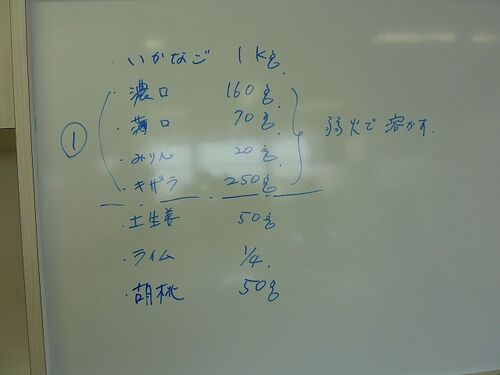 ・いかなご 1kg.
・濃口 160g.
・薄口 70g.
① ・みりん 20g. 弱火で溶かす.
・キザラ 250g.
・土生姜 50g
・ライム 1/4.
・胡桃 50g